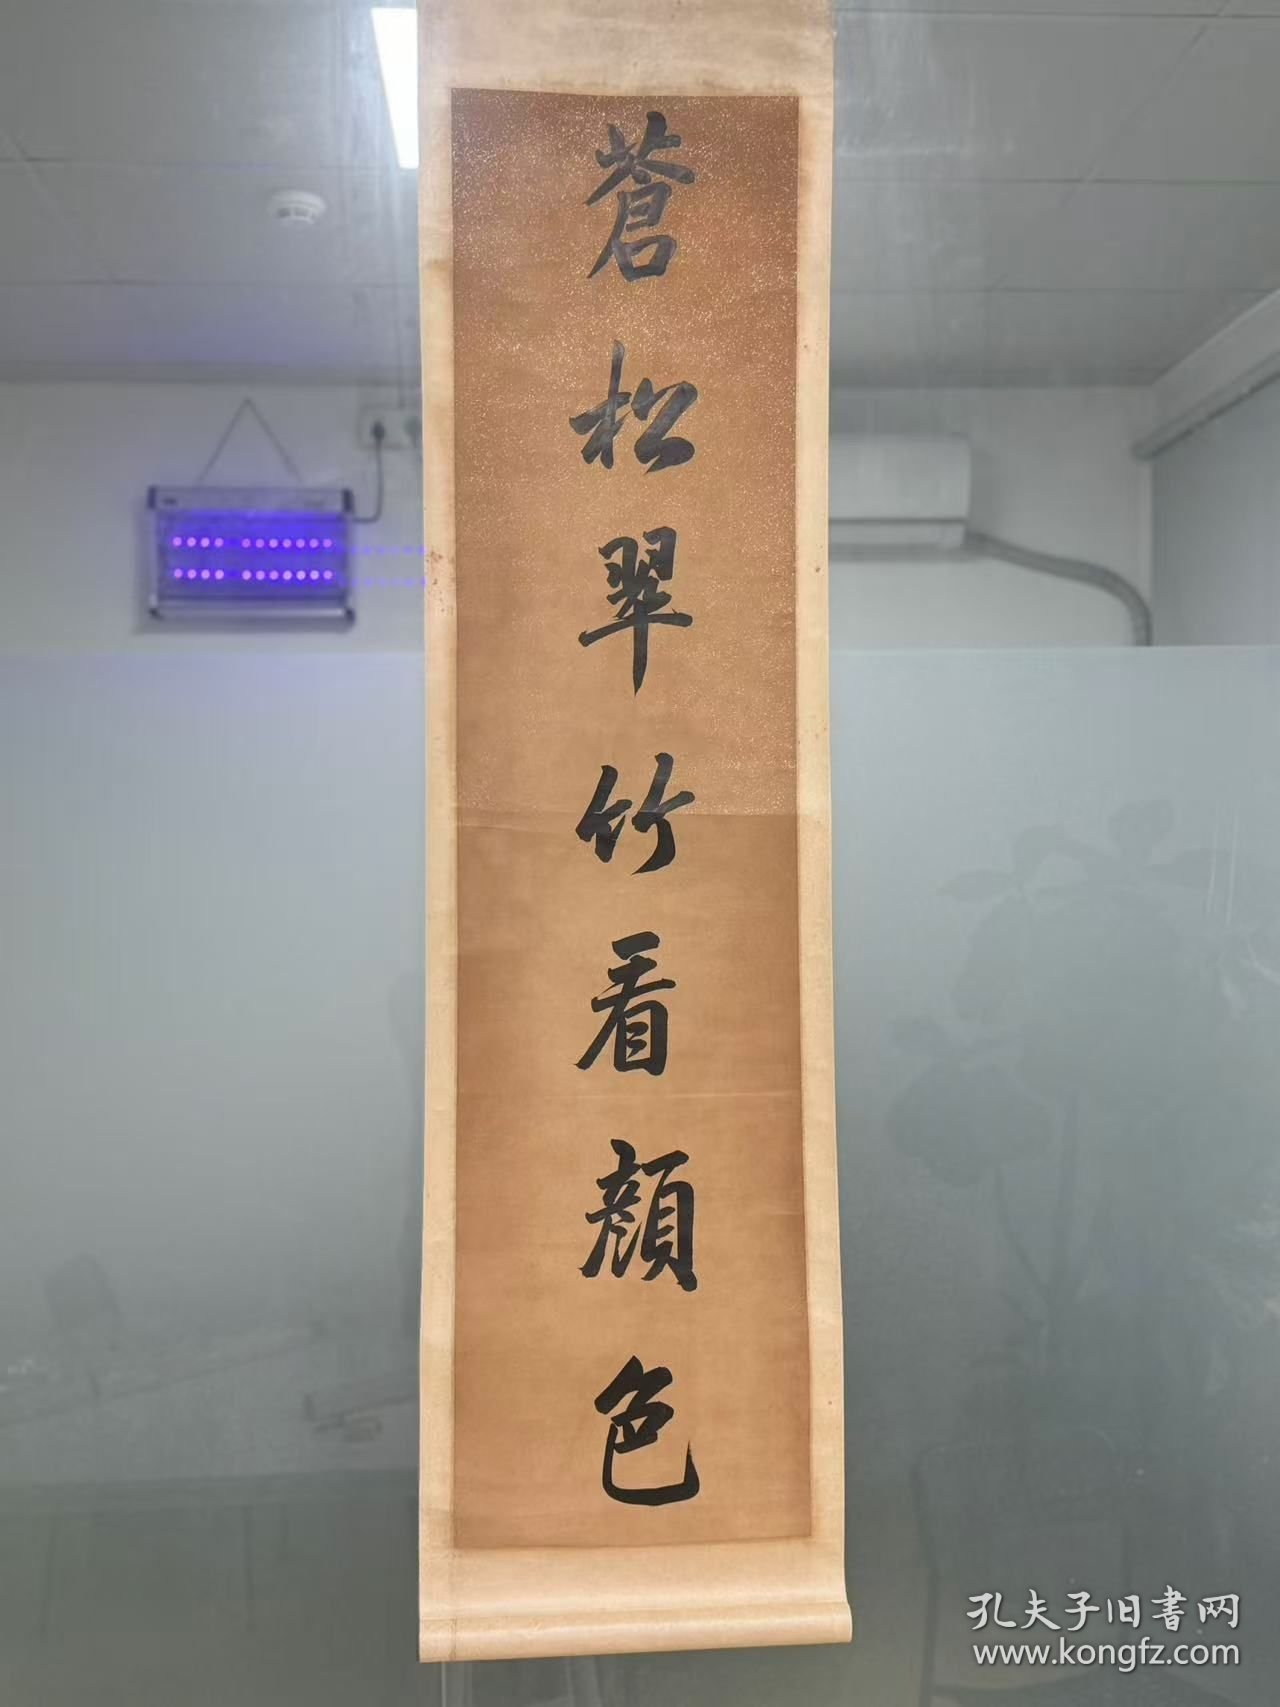 蒼松翠竹看顏色
孔夫子旧書网
www.kongfz.com